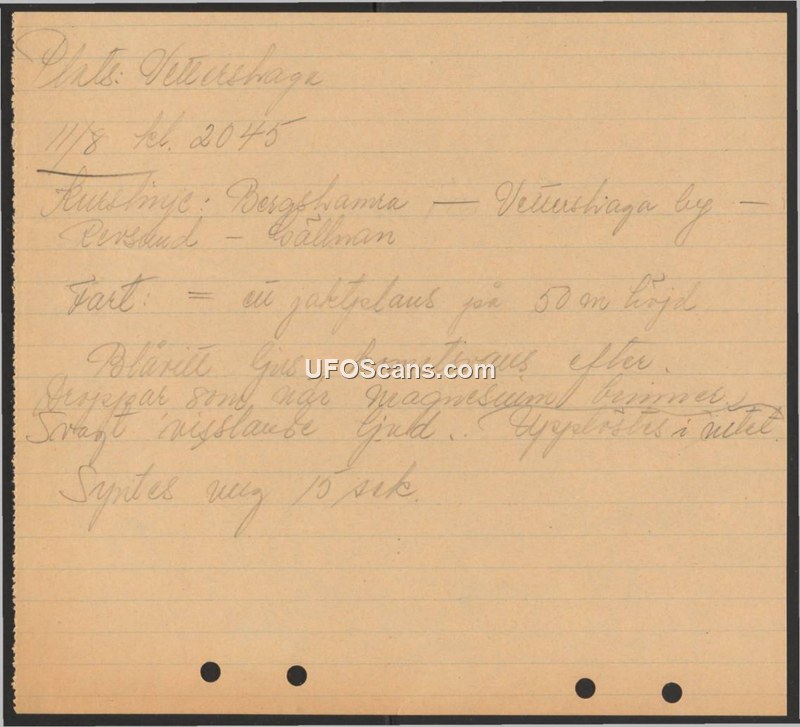 Plats: Vettershaga
11/8 kl. 2045
Kurslinje: Bergshamra — Vettershaga by —
Revsund - Gällnan
Fart: = ett jaktplans på 50 m höjd
Blåvitt ljus, kometsvans efter.
UFOScans.com
Droppar som när magnesium brinner
Svagt visslande ljud. Upplöstes i intet.
Syntes ung 15 sek.